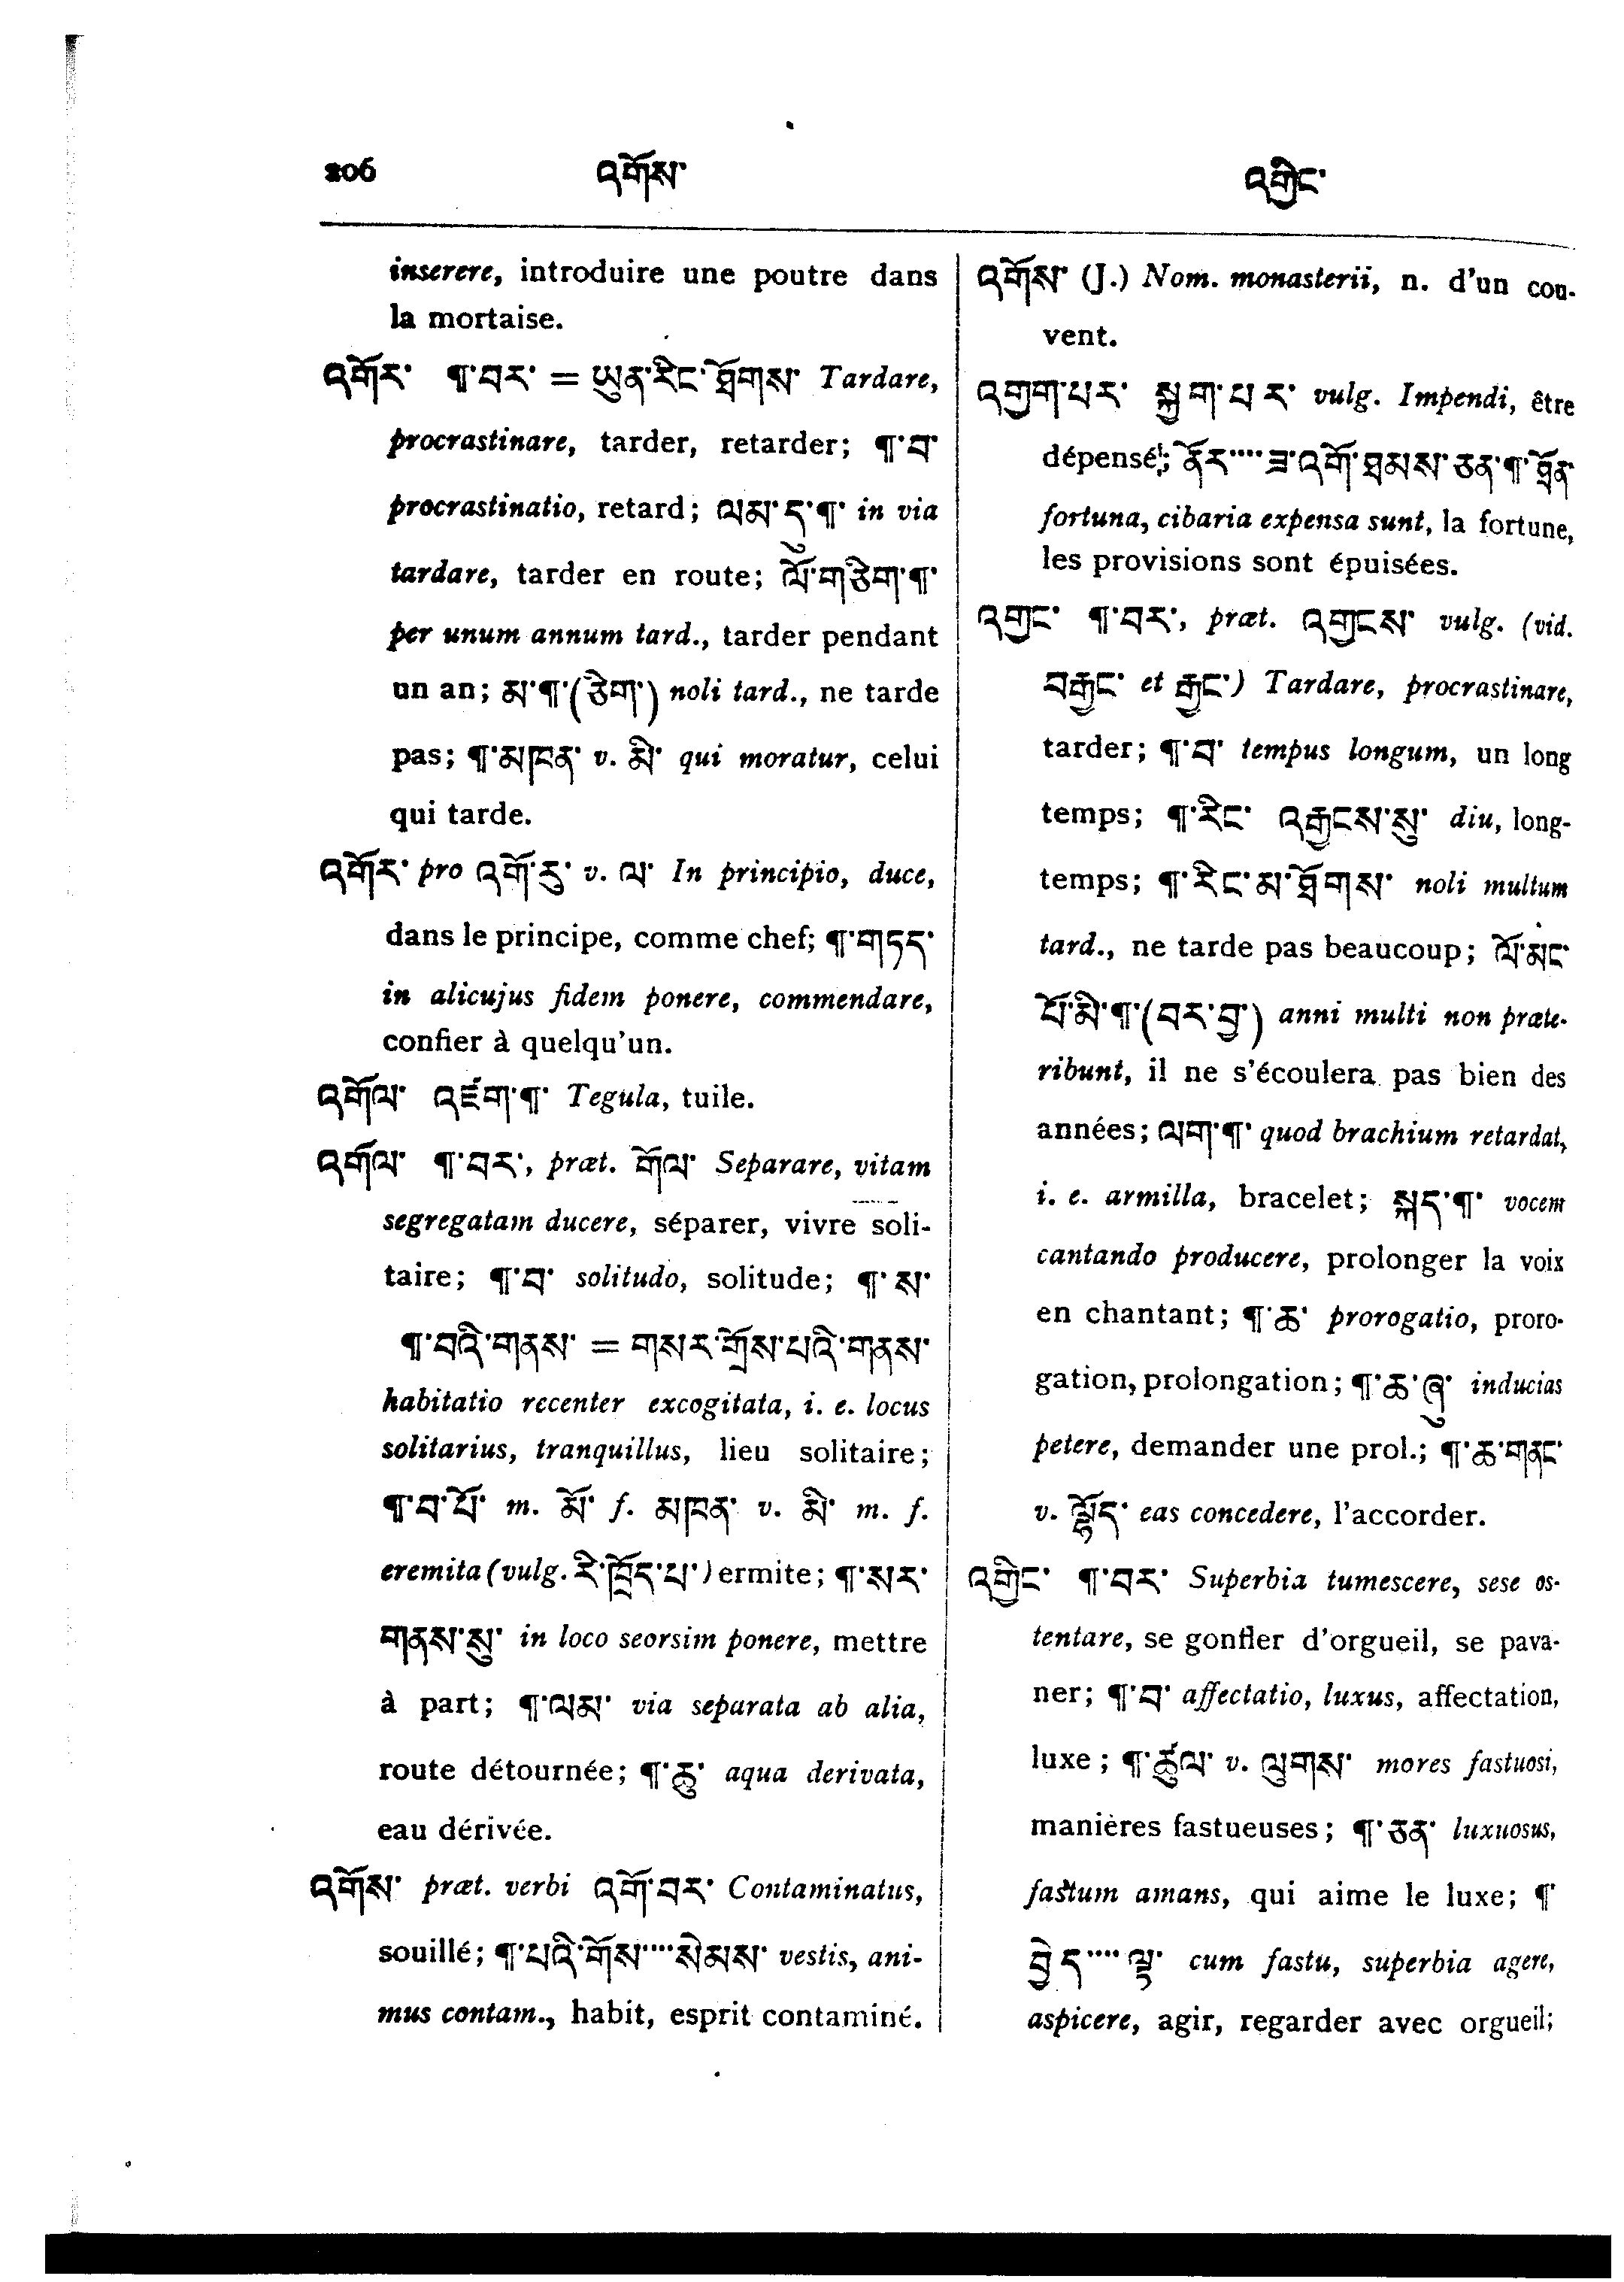 206 འགོས་ འགྱིང་
inserere, introduire une poutre dans
la mortaise.
འགོར་ ¶་བར་ = ཡུན་རིང་ཐོགས་ Tardare,
procrastinare, tarder, retarder; ¶་བ་
procrastinatio, retard; ལམ་དུ་¶་ in via
tardare, tarder en route; ལོ་གཅིག་¶་
per unum annum tard., tarder pendant
un an; མ་¶་(ཅིག་) noli tard., ne tarde
pas; ¶་མཁན་ v. མི་ qui moratur, celui
qui tarde.
འགོར་ pro འགོ་རུ་ v. ལ་ In principio, duce,
dans le principe, comme chef; ¶་གཏད་
in alicujus fidem ponere, commendare,
confier à quelqu'un.
འགོལ་ ¶་ Tegula, tuile.
འགོལ་ ¶་བར་, præt. གོལ་ Separare, vitam
segregatam ducere, séparer, vivre soli-
taire; ¶་བ་ solitudo, solitude; ¶་ས་
¶་བའི་གནས་ = གསར་གྲོས་པའི་གནས་
habitatio recenter excogitata, i. e. locus
solitarius, tranquillus, lieu solitaire;
¶་བ་པོ་ m. མོ་ f. མཁན་ v. མི་ m. f.
eremita (vulg. རི་ཁྲོད་པ་) ermite; ¶་སར་
གནས་སུ་ in loco seorsim ponere, mettre
à part; ¶་ལམ་ via separata ab alia,
route détournée; ¶་ཆུ་ aqua derivata,
eau dérivée.
འགོས་ præt. verbi འགོ་བར་ Contaminatus,
souillé; ¶་པའི་གོས་····སེམས་ vestis, ani-
mus contam., habit, esprit contaminé.
འགོས་ (J.) Nom. monasterii, n. d'un cou-
vent.
འགྱག་པར་ སྐྱག་པར་ vulg. Impendi, être
dépensé; ནོར་····ཟ་འགོ་ཐམས་ཅན་¶་ཐོན་
fortuna, cibaria expensa sunt, la fortune,
les provisions sont épuisées.
འགྱང་ ¶་བར་, præt. འགྱངས་ vulg. (vid.
བརྒྱང་ et རྒྱང་) Tardare, procrastinare,
tarder; ¶་བ་ tempus longum, un long
temps; ¶་རིང་ འརྒྱངས་སུ་ diu, long-
temps; ¶་རིང་མ་ཐོགས་ noli multum
tard., ne tarde pas beaucoup; ལོ་མང་
པོ་མི་¶་(བར་བྱ་) anni multi non præte-
ribunt, il ne s'écoulera pas bien des
années; ལག་¶་ quod brachium retardat,
i. e. armilla, bracelet; སྐད་¶་ vocem
cantando producere, prolonger la voix
en chantant; ¶་ཆ་ prorogatio, proro-
gation, prolongation; ¶་ཆ་ཞུ་ inducias
petere, demander une prol.; ¶་ཆ་གནང་
v. ལྷོད་ eas concedere, l'accorder.
འགྱིང་ ¶་བར་ Superbia tumescere, sese os-
tentare, se gonfler d'orgueil, se pava-
ner; ¶་བ་ affectatio, luxus, affectation,
luxe; ¶་ཚུལ་ v. ལུགས་ mores fastuosi,
manières fastueuses; ¶་ཅན་ luxuosus,
fastum amans, qui aime le luxe; ¶་
བྱེད་····ལྟ་ cum fastu, superbia agere,
aspicere, agir, regarder avec orgueil;